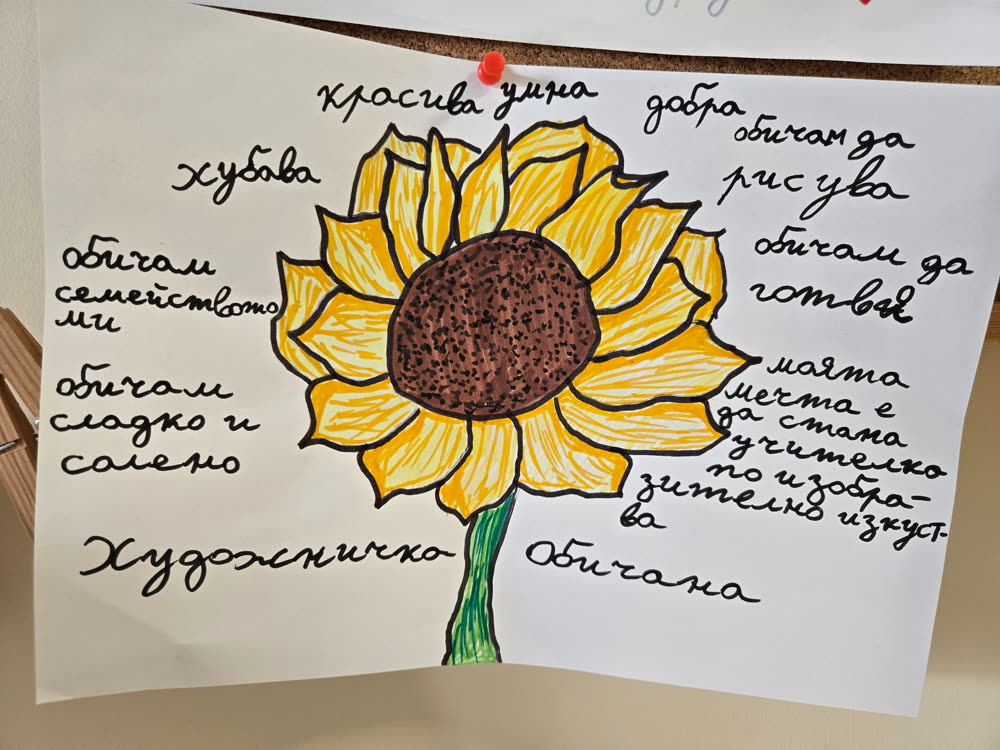 красива умна
добра
хубава
обичам да
рисува
обичам
семейството
ми
обичам да
готвя
обичам
сладко и
солено
маята
мечта е
да стана
учителко
по изобра-
зително изкуст-
ва
Художничка
Обичана